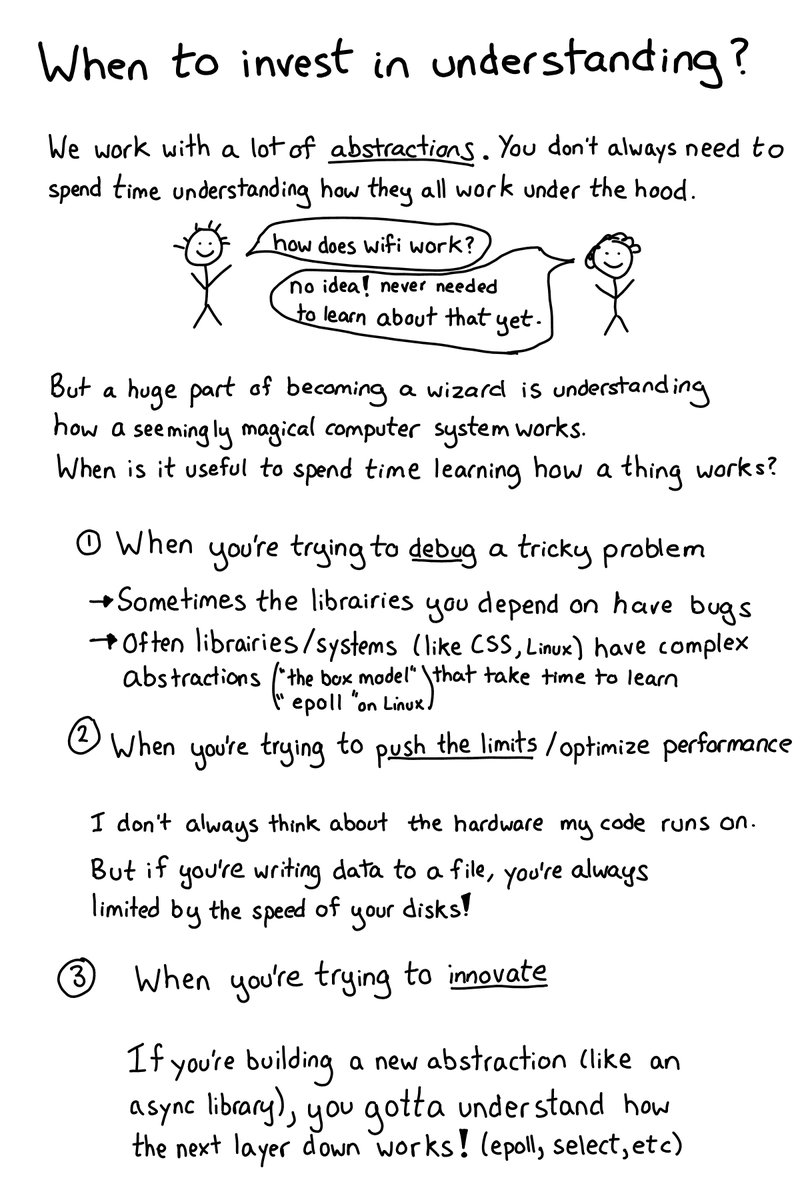 When to invest in understanding?
We work with a lot of abstractions. You don't always need to
spend time understanding how they all work under the hood.
how does wifi work?
no idea! never needed
to learn about that yet.
But a huge part of becoming a wizard is understanding
how a seemingly magical computer system works.
When is it useful to spend time learning how a thing works?
① When you're trying to debug a tricky problem
→ Sometimes the librairies you depend on have bugs
→ Often librairies/systems (like CSS, Linux) have complex
abstractions ("the box model" that take time to learn
" epoll "on Linux)
② When you're trying to push the limits /optimize performance
I don't always think about the hardware my code runs on.
But if you're writing data to a file, you're always
limited by the speed of your disks!
③ When you're trying to innovate
If you're building a new abstraction (like an
async library), you gotta understand how
the next layer down works! (epoll, select, etc)